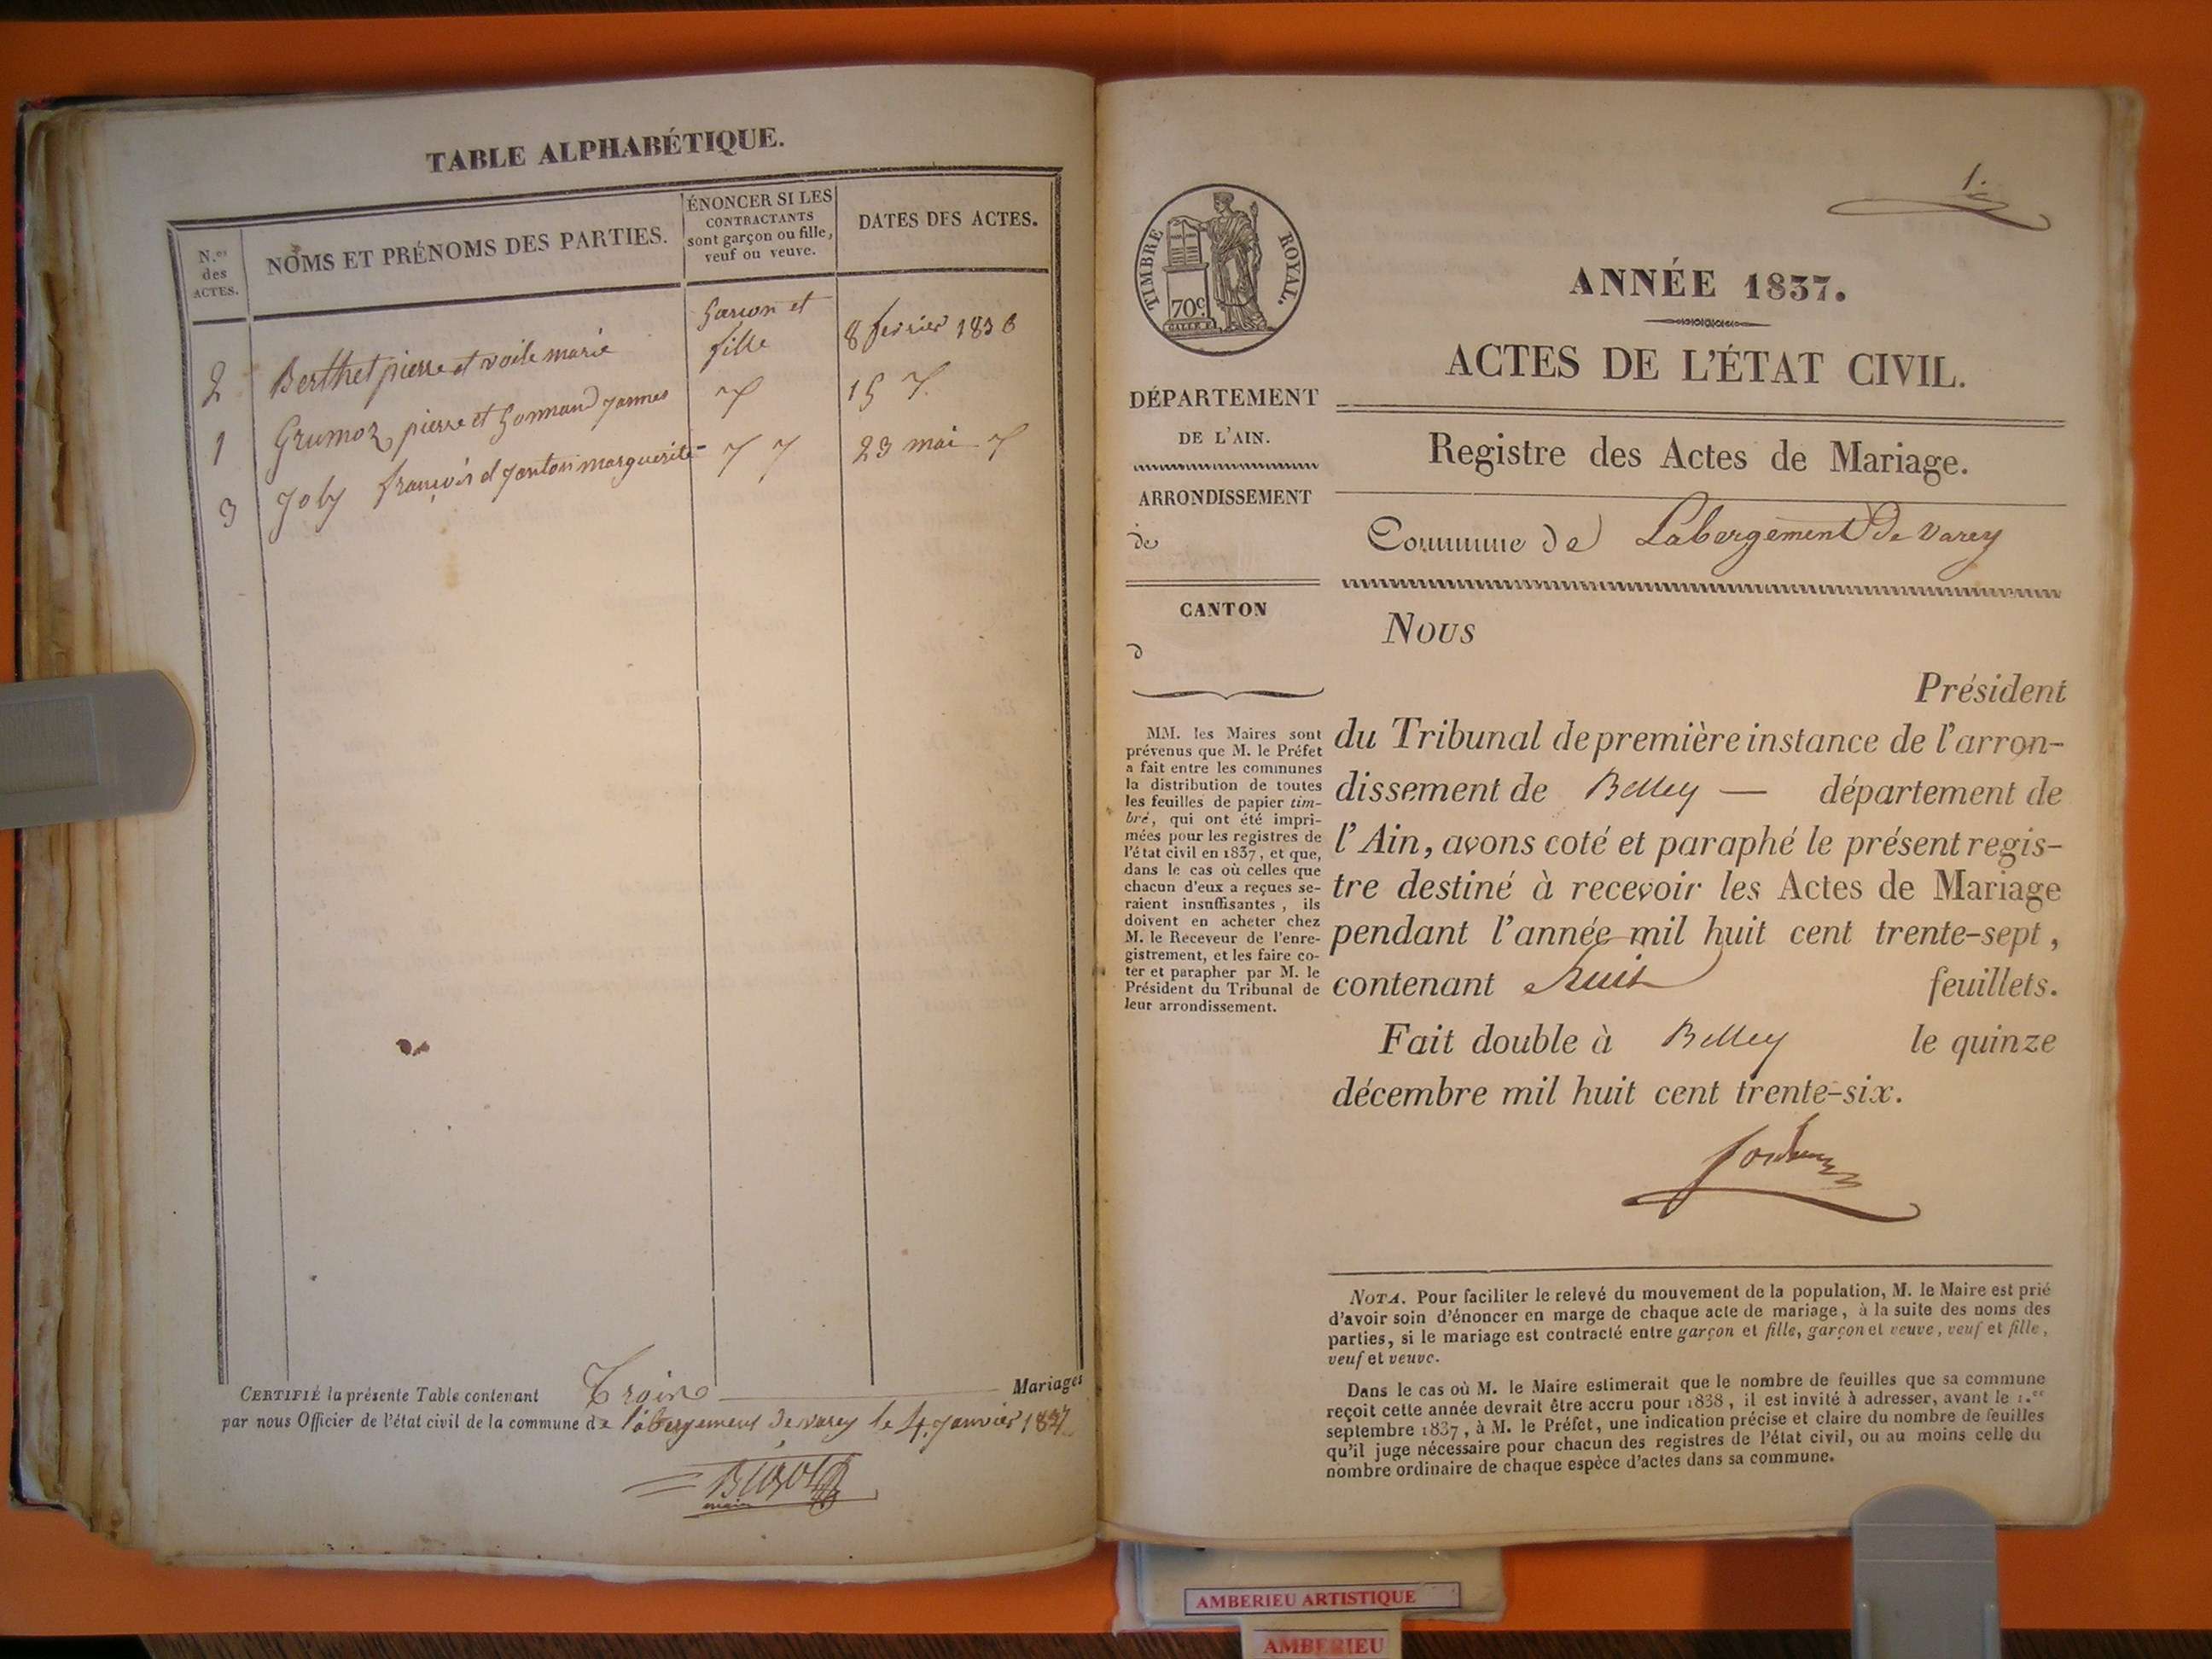 TABLE ALPHABÉTIQUE.
N.os
des
ACTES.
NOMS ET PRÉNOMS DES PARTIES.
ÉNONCER SI LES
CONTRACTANTS
sont garçon ou fille,
veuf ou veuve.
DATES DES ACTES.
2 Berthet pierre et voile marie garcon et fille 8 fevrier 1836
1 Grumoz pierre et Gonnand 15
3 Joly françois et marguerite 23 mai
CERTIFIÉ la présente Table contenant Trois Mariages
par nous Officier de l'état civil de la commune de l'abergement de varey le 4 janvier 1837
maire
1.
TIMBRE ROYAL.
70c
ANNÉE 1837.
ACTES DE L'ÉTAT CIVIL.
Registre des Actes de Mariage.
Commune de Labergement de Varey
DÉPARTEMENT
DE L'AIN.
ARRONDISSEMENT
de
CANTON
d
MM. les Maires sont
prévenus que M. le Préfet
a fait entre les communes
la distribution de toutes
les feuilles de papier tim-
bré, qui ont été impri-
mées pour les registres de
l'état civil en 1837, et que,
dans le cas où celles que
chacun d'eux a reçues se-
raient insuffisantes, ils
doivent en acheter chez
M. le Receveur de l'enre-
gistrement, et les faire co-
ter et parapher par M. le
Président du Tribunal de
leur arrondissement.
Nous
Président
du Tribunal de première instance de l'arron-
dissement de Belley — département de
l'Ain, avons coté et paraphé le présent regis-
tre destiné à recevoir les Actes de Mariage
pendant l'année mil huit cent trente-sept,
contenant huit feuillets.
Fait double à Belley le quinze
décembre mil huit cent trente-six.
NOTA. Pour faciliter le relevé du mouvement de la population, M. le Maire est prié
d'avoir soin d'énoncer en marge de chaque acte de mariage, à la suite des noms des
parties, si le mariage est contracté entre garçon et fille, garçon et veuve, veuf et fille,
veuf et veuve.
Dans le cas où M. le Maire estimerait que le nombre de feuilles que sa commune
reçoit cette année devrait être accru pour 1838, il est invité à adresser, avant le 1.er
septembre 1837, à M. le Préfet, une indication précise et claire du nombre de feuilles
qu'il juge nécessaire pour chacun des registres de l'état civil, ou au moins celle du
nombre ordinaire de chaque espèce d'actes dans sa commune.
AMBERIEU ARTISTIQUE
AMBERIEU